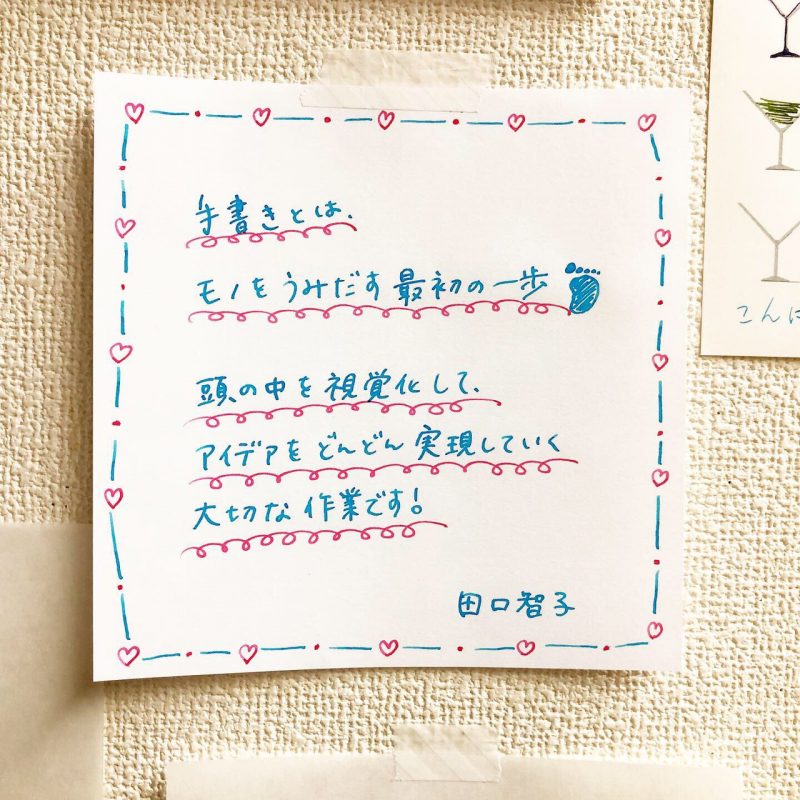 手書きとは、
モノをうみだす最初の一歩
頭の中を視覚化して、
アイデアをどんどん実現していく
大切な作業です!
田口智子
こんに